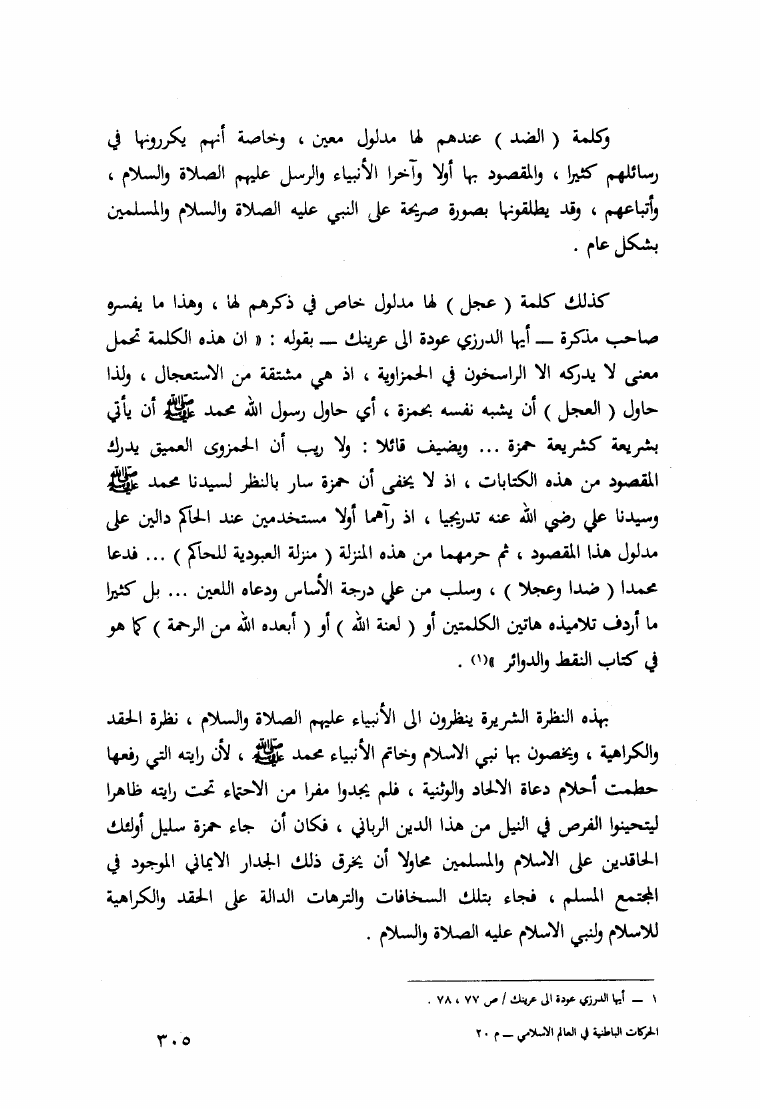 وكلمة ( الضد ) عندهم لها مدلول معين ، وخاصة أنهم يكررونها في
رسائلهم كثيرا ، والمقصود بها أولا وآخرا الأنبياء والرسل عليهم الصلاة والسلام ،
وأتباعهم ، وقد يطلقونها بصورة صريحة على النبي عليه الصلاة والسلام والمسلمين
بشكل عام .
كذلك كلمة ( عجل ) لها مدلول خاص في ذكرهم لها ، وهذا ما يفسره
صاحب مذكرة ــ أيها الدرزي عودة الى عرينك ــ بقوله : « ان هذه الكلمة تحمل
معنى لا يدركه الا الراسخون في الحمزاوية ، اذ هي مشتقة من الاستعجال ، ولذا
حاول ( العجل ) أن يشبه نفسه بحمزة ، أي حاول رسول الله محمد ﷺ أن يأتي
بشريعة كشريعة حمزة ... ويضيف قائلا : ولا ريب أن الحمزوى العميق يدرك
المقصود من هذه الكتابات ، اذ لا يخفى أن حمزة سار بالنظر لسيدنا محمد ﷺ
وسيدنا علي رضي الله عنه تدريجيا ، اذ رآهما أولا مستخدمين عند الحاكم دالين على
مدلول هذا المقصود ، ثم حرمهما من هذه المنزلة ( منزلة العبودية للحاكم ) ... فدعا
محمدا ( ضدا وعجلا ) ، وسلب من علي درجة الأساس ودعاه اللعين ... بل كثيرا
ما أردف تلاميذه هاتين الكلمتين أو ( لعنة الله ) أو ( أبعده الله من الرحمة ) كما هو
في كتاب النقط والدوائر »(١) .
بهذه النظرة الشريرة ينظرون الى الأنبياء عليهم الصلاة والسلام ، نظرة الحقد
والكراهية ، ويخصون بها نبي الاسلام وخاتم الأنبياء محمد ﷺ ، لأن رايته التي رفعها
حطمت أحلام دعاة الالحاد والوثنية ، فلم يجدوا مفرا من الاحتماء تحت رايته ظاهرا
ليتحينوا الفرص في النيل من هذا الدين الرباني ، فكان أن جاء حمزة سليل أولئك
الحاقدين على الاسلام والمسلمين محاولا أن يخرق ذلك الجدار الايماني الموجود في
المجتمع المسلم ، فجاء بتلك السخافات والترهات الدالة على الحقد والكراهية
للاسلام ولنبي الاسلام عليه الصلاة والسلام .
١ ــ أيها الدرزي عودة الى عرينك / ص ٧٧ ، ٧٨ .
الحركات الباطنية في العالم الاسلامي ــ م ٢٠
٣٠٥